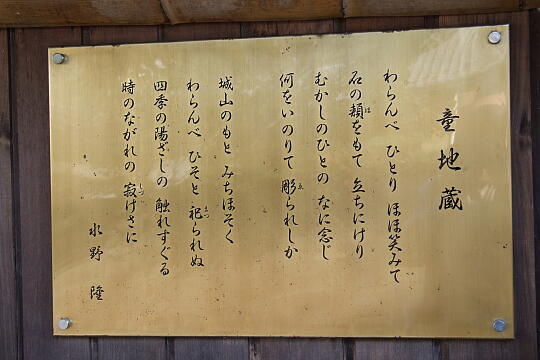 童地蔵
わらんべ ひとり ほほ笑みて
石の頬をもて 立ちにけり
むかしのひとの なに念じ
何をいのりて 彫られしか
城山のもと みちほそく
わらんべ ひそと 祀られぬ
四季の陽ざしの 触れすぐる
時のながれの 寂けさに
水野 隆